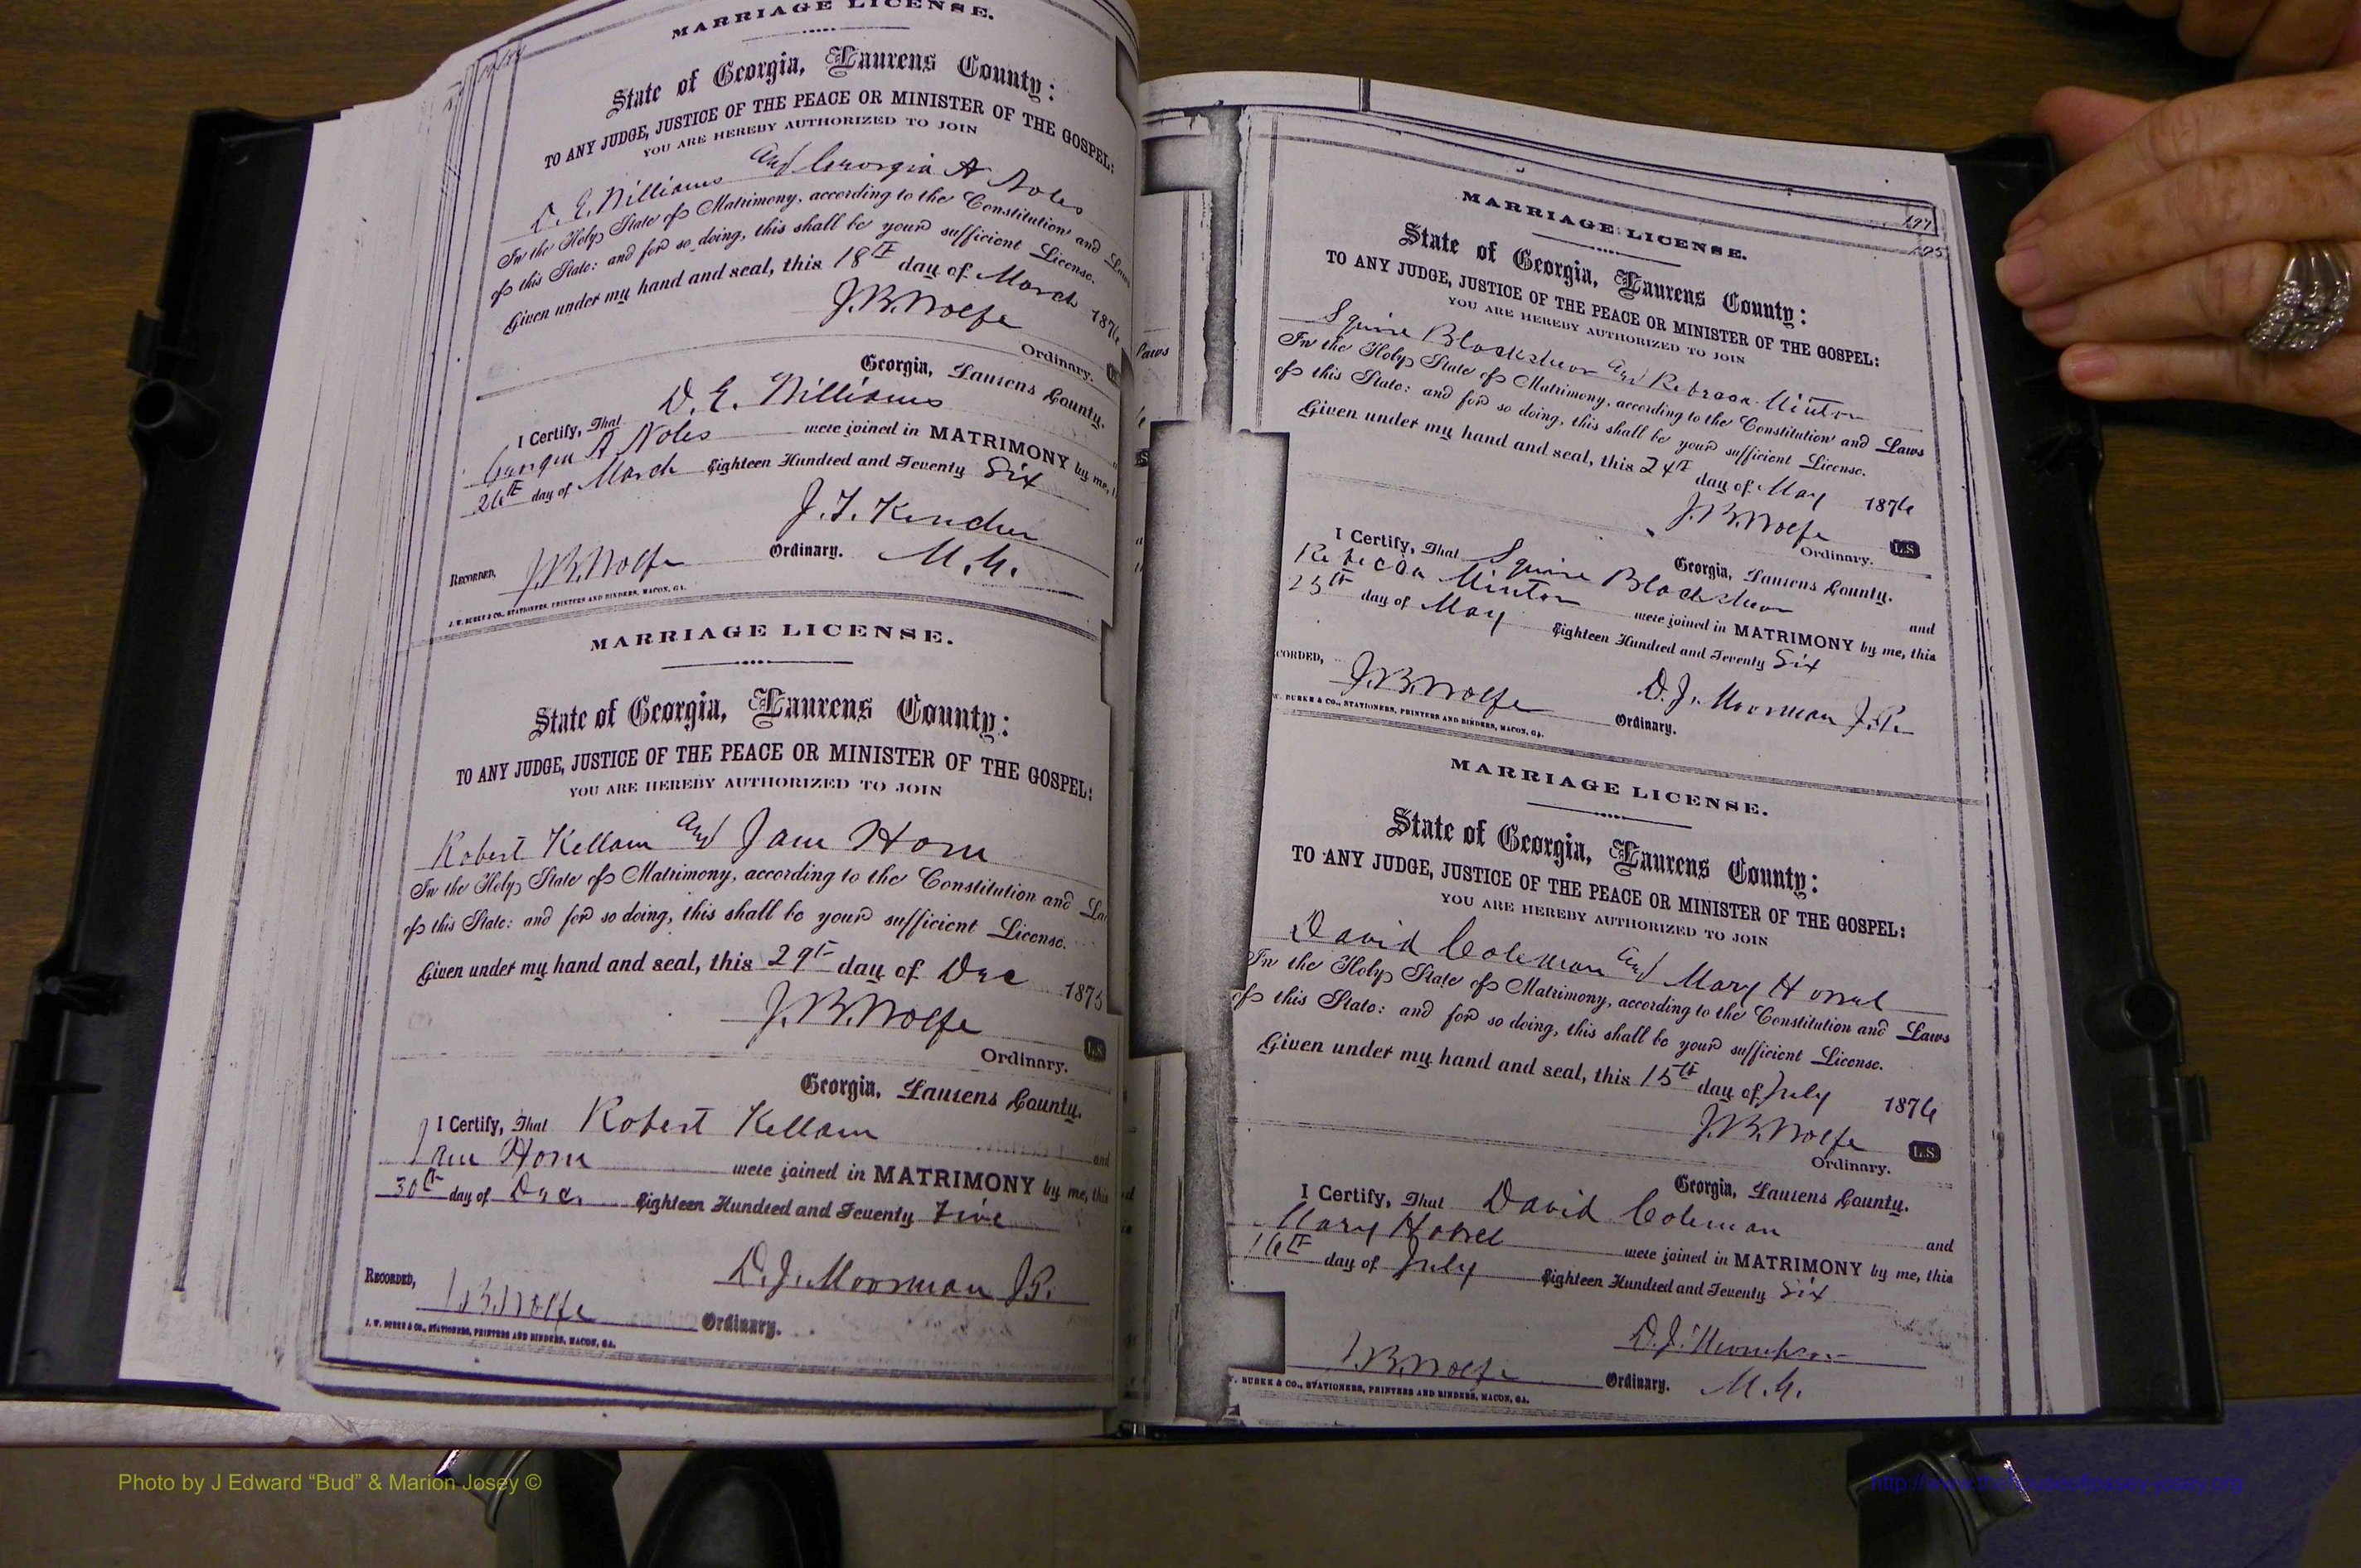 MARRIAGE LICENSE.
State of Georgia, Laurens County:
TO ANY JUDGE, JUSTICE OF THE PEACE OR MINISTER OF THE GOSPEL:
YOU ARE HEREBY AUTHORIZED TO JOIN
D. E. Williams and Georgia A Noles
In the Holy State of Matrimony, according to the Constitution and Laws
of this State: and for so doing, this shall be your sufficient License.
Given under my hand and seal, this 18th day of March 1876
J.B. Wolfe
Ordinary.
Georgia, Laurens County.
I Certify, That D. E. Williams
Georgia A Noles were joined in MATRIMONY by me,
26th day of March Eighteen Hundred and Seventy Six
J. T. Kinchen
RECORDED, J.B. Wolfe Ordinary. M. G.
J. W. BURKE & CO., STATIONERS, PRINTERS AND BINDERS, MACON, GA.
MARRIAGE LICENSE.
State of Georgia, Laurens County:
TO ANY JUDGE, JUSTICE OF THE PEACE OR MINISTER OF THE GOSPEL:
YOU ARE HEREBY AUTHORIZED TO JOIN
Robert Kellam and Jane Horn
In the Holy State of Matrimony, according to the Constitution and La
of this State: and for so doing, this shall be your sufficient License.
Given under my hand and seal, this 29th day of Dec 1875
J.B. Wolfe
L.S.
Ordinary.
Georgia, Laurens County.
I Certify, That Robert Kellam and
Jane Horn were joined in MATRIMONY by me, this
30th day of Dec. Eighteen Hundred and Seventy Five
D. J. Moorman J.P.
RECORDED, J.B. Wolfe Ordinary.
J. W. BURKE & CO., STATIONERS, PRINTERS AND BINDERS, MACON, GA.
Laws
197
195
MARRIAGE LICENSE.
State of Georgia, Laurens County:
TO ANY JUDGE, JUSTICE OF THE PEACE OR MINISTER OF THE GOSPEL:
YOU ARE HEREBY AUTHORIZED TO JOIN
Squire Blackshear and Rebecca Minton
In the Holy State of Matrimony, according to the Constitution and Laws
of this State: and for so doing, this shall be your sufficient License.
Given under my hand and seal, this 24th day of May 1876
J.B. Wolfe
Ordinary. L.S.
Georgia, Laurens County.
I Certify, That Squire Blackshear and
Rebecca Minton were joined in MATRIMONY by me, this
25th day of May Eighteen Hundred and Seventy Six
D. J. Moorman J.P.
CORDED, J.B. Wolfe Ordinary.
W. BURKE & CO., STATIONERS, PRINTERS AND BINDERS, MACON, GA.
MARRIAGE LICENSE.
State of Georgia, Laurens County:
TO ANY JUDGE, JUSTICE OF THE PEACE OR MINISTER OF THE GOSPEL:
YOU ARE HEREBY AUTHORIZED TO JOIN
David Coleman and Mary Howel
In the Holy State of Matrimony, according to the Constitution and Laws
of this State: and for so doing, this shall be your sufficient License.
Given under my hand and seal, this 15th day of July 1876
J.B. Wolfe
Ordinary. L.S.
Georgia, Laurens County.
I Certify, That David Coleman and
Mary Howel were joined in MATRIMONY by me, this
16th day of July Eighteen Hundred and Seventy Six
D. J.
J.B. Wolfe Ordinary. M. G.
W. BURKE & CO., STATIONERS, PRINTERS AND BINDERS, MACON, GA.
Photo by J Edward “Bud” & Marion Josey ©